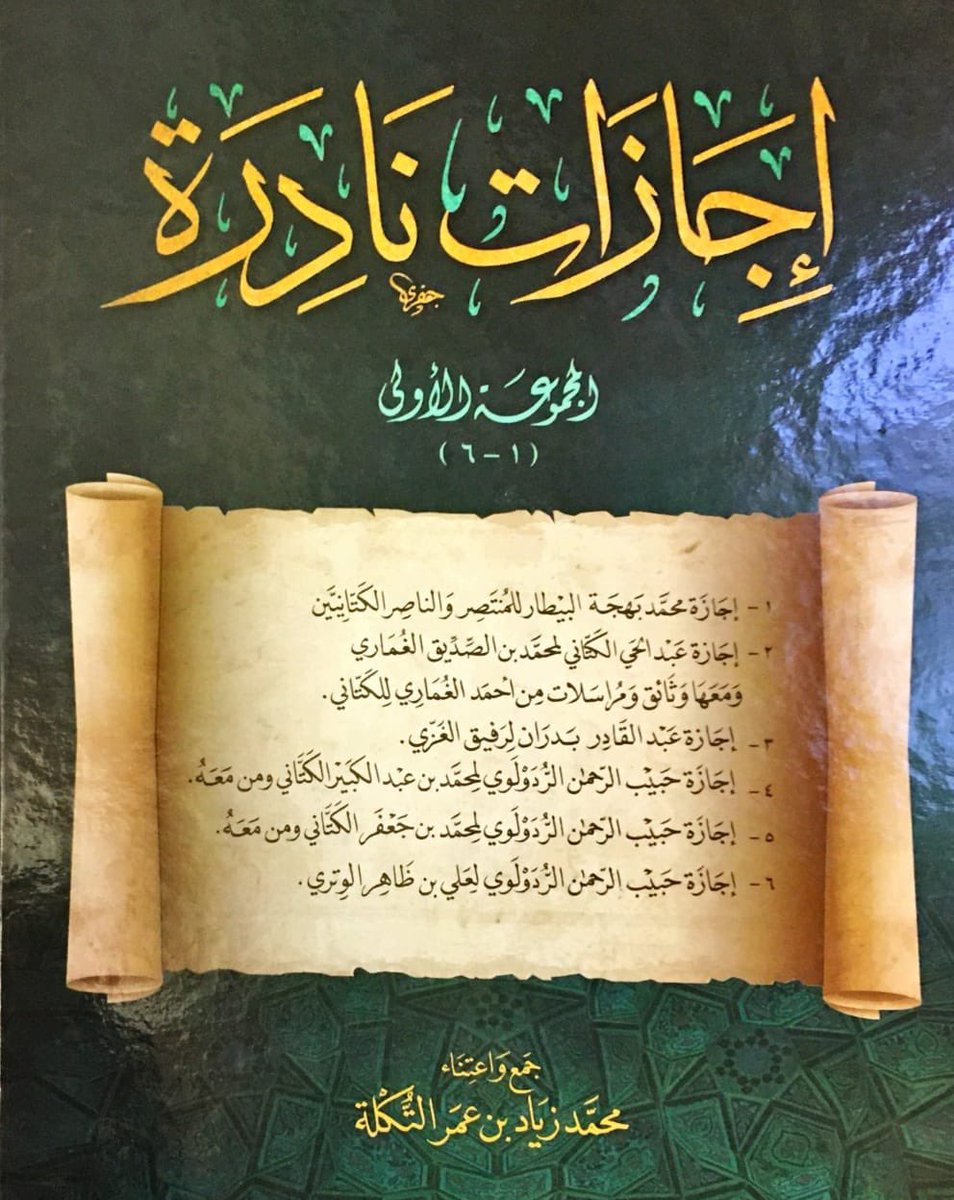 إِجَازَات نَادِرَة
جفري
المجموعة الأولى
(١-٦)
١- إجَازَة محمَّد بَهجَة البيْطار للمُنتَصِر وَالناصِر الكَتّانِيَّين
٢- إجَازة عَبْد الحَي الكَتّاني لمحمَّد بن الصِّدِّيق الغُمَاري
وَمَعَهَا وَثَائق وَمُرَاسَلات مِن أحْمَد الغُمَاري لِلكَتّاني.
٣- إجَازة عَبْد القَادِر بَدرَان لِرَفيق الغَزّي.
٤- إجَازَة حَبيْب الرّحمٰن الرُّدَوْلَوي لمحمَّد بن عبْد الكَبيْر الكَتَّاني ومن مَعَهُ.
٥- إجَازَة حَبيْب الرّحمٰن الرُّدَوْلَوي لمحمَّد بن جَعْفَر الكَتَّاني ومن مَعَهُ.
٦- إجَازَة حَبيْب الرّحمٰن الرُّدَوْلَوي لِعَلي بن ظَاهِر الوِتري.
جَمع وَاعتِنَاء
محمَّد زيَاد بن عمَر التُّكلَة